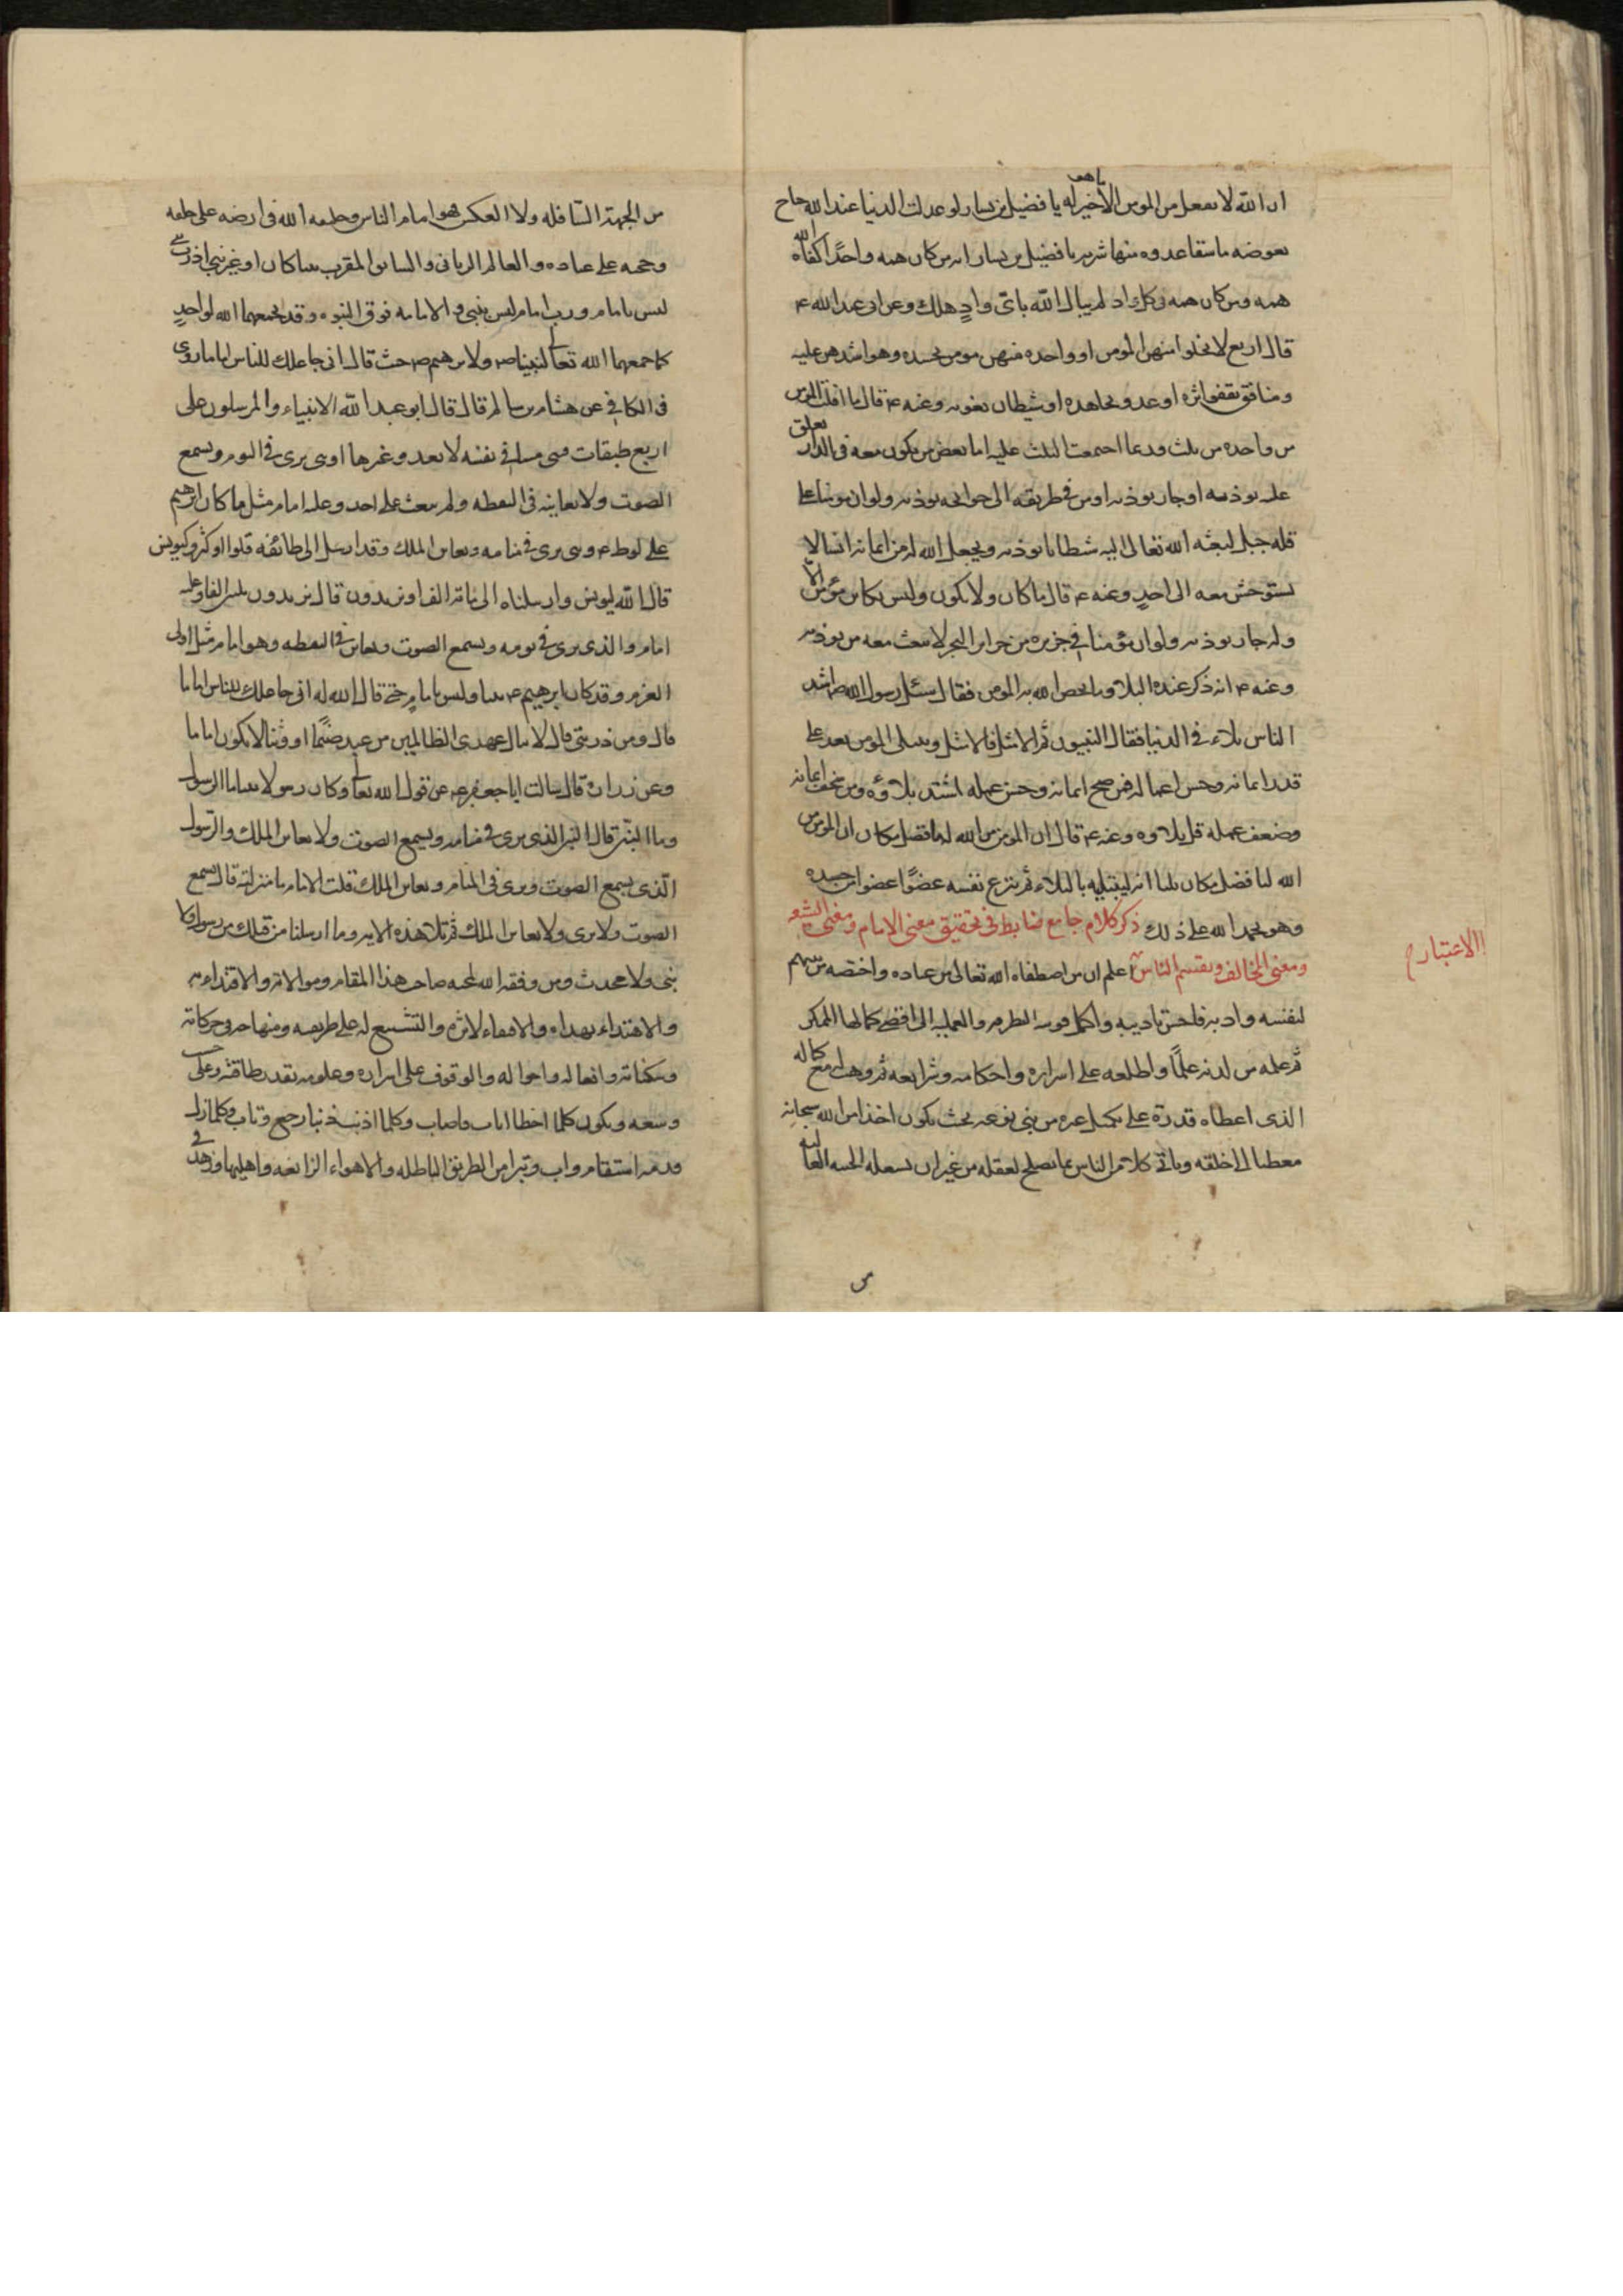 ان الله لا يفعل بالمومن الا ما هو خير له يا فضيل بن يسار لو عدلت الدنيا عند الله جناح
بعوضه ما سقا عدوه منها شربه يا فضيل بن يسار انه من كان همه واحدًا كفاه الله
همه ومن كان همه فى كل واد لم يبال الله باىّ وادٍ هلك وعن ابى عبد الله ع
قال اربع لا يخلوا منهن المومن او واحده منهن مومن يحسده وهو اشدهن عليه
ومنافق يقفوا اثره او عدو يجاهده او شيطان يغويه وعنه ع قال ما افلت المومن
من واحده من ثلث وربما اجتمعت الثلث عليه اما بعض من يكون معه فى الدار يغلق
عليه يوذيه او جار يوذيه او من فى طريقه الى حوائجه يوذيه ولو ان مومنا على
قله جبل لبعث الله تعالى اليه شيطانا يوذيه ويجعل الله له من ايمانه انسا لا
يستوحش معه الى احدٍ وعنه ع قال ما كان ولا يكون وليس بكائن مؤمن الا
وله جار يوذيه ولو ان مؤمنا فى جزيره من جزاير البحر لابتعث معه من يوذيه
وعنه ع انه ذكر عنده البلاء وما يخص الله به المومن فقال سئل رسول الله ص من اشد
الناس بلاء فى الدنيا فقال النبيون ثم الامثل فالامثل ويبتلى المومن بعد على
قدر ايمانه وحسن اعماله فمن صح ايمانه وحسن عمله اشتد بلاؤه ومن سخف ايمانه
وضعف عمله قل بلاوه وعنه ع قال ان المومن من الله لبافضل مكان ان المومن من
الله لبافضل مكان ثلثا انه ليبتليه بالبلاء ثم ينزع نفسه عضوًا عضوا من جسده
وهو يحمد الله على ذلك ذكر كلام جامع ضابط فى تحقيق معنى الامام ومعنى الشيعه
ومعنى المخالف وتقسيم الناس اعلم ان من اصطفاه الله تعالى من عباده واختصه من بينهم
الاعتبارح
لنفسه وادبه فاحسن تاديبه واكمل قوتيه النظريه والعمليه الى اقصى كمالها الممكن
ثم علمه من لدنه علمًا واطلعه على اسراره واحكامه وشرايعه ثم وهب له مع كماله
الذى اعطاه قدرة على تكميل غيره من بنى نوعه بحيث يكون اخذا من الله سبحانه
معطيا الى خلقه وياتى كلا من الناس بما يصلح لعقله من غير ان يشغله الجهه العاليه
من الجهة السافله ولا العكس فهو امام الناس وخليفه الله فى ارضه على خلقه
وحجته على عباده والعالم الربانى والسابق المقرب نبيا كان او غير نبى اذ رب نبى
ليس بامام ورب امام ليس بنبى والامامه فوق النبوه وقد يجمعهما الله لواحدٍ
كما جمعهما الله تعالى لنبينا ص ولابرهيم ص حيث قال انى جاعلك للناس اماما روى
فى الكافى عن هشام بن سالم قال قال ابو عبد الله الانبياء والمرسلون على
اربع طبقات فنبى منبا فى نفسه لا يعدو غيرها ونبى يرى فى النوم ويسمع
الصوت ولا يعاينه فى اليقظه ولم يبعث على احد وعليه امام مثل ما كان ابرهيم
على لوط ع ونبى يرى فى منامه ويعاين الملك وقد ارسل الى طائفه قلوا او كثروا كيونس
قال الله ليونس وارسلناه الى مائة الف او يزيدون قال يزيدون ثلثين الفا وعليه
امام والذى يرى فى نومه ويسمع الصوت ويعاين فى اليقظه وهو امام مثل اولى
العزم وقد كان ابرهيم ع نبيا وليس بامام حتى قال الله له انى جاعلك للناس اماما
قال ومن ذريتى قال لا ينال عهدى الظالمين من عبد صنمًا او وثنا لا يكون اماما
وعن زرارة قال سالت ابا جعفر ع عن قول الله تعالى وكان رسولا نبيا ما الرسول
وما النبى قال النبى الذى يرى فى منامه ويسمع الصوت ولا يعاين الملك والرسول
الذى يسمع الصوت ويرى فى المنام ويعاين الملك قلت الامام ما منزلته قال يسمع
الصوت ولا يرى ولا يعاين الملك ثم تلا هذه الايه وما ارسلنا من قبلك من رسول ولا
نبى ولا محدث ومن وفقه الله لمحبه صاحب هذا المقام وموالاته والاقتداء به
والاهتداء بهداه والاقتفاء لاثره والتشيع له على طريقته ومنهاجه فى حركاته
وسكناته وافعاله واحواله والوقوف على اسراره وعلومه بقدر طاقته وعلى حسب
وسعه ويكون كلما اخطا اناب واصاب وكلما اذنب ذنبا رجع وتاب وكلما زل
قدمه استقام واب وتبرا من الطريق الباطله والاهواء الزائغه واهليها وزهد فى